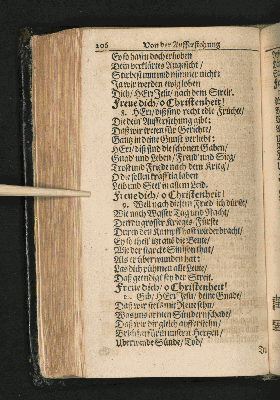 206 Von der Aufferstehung
Ey so hastu doch erhoben
Dein verklärtes Angesicht/
Stirbest nun und nimmer nicht:
Ja wir werden ewig loben
Dich/ HErr Jesu/ nach dem Streit.
Freue dich/ o Christenheit!
8. HErr/ diß sind recht edle Früchte/
Die dein Aufferstehung gibt:
Daß wir treten für Gerichte/
Gantz in deine Gunst verliebt:
HErr/ diß sind die schönen Gaben/
Gnad' und Leben/ Freud' und Sieg/
Trost und Friede nach dem Krieg/
O die sollen kräfftig laben
Leib und Seel' in allem Leid.
Freue dich/ o Christenheit!
9. Weil nach diesem Fried' ich dürste/
Wie nach Wasser Tag und Nacht/
Den du grosser Krieges-Fürste
Durch den Kampff hast wiederbracht/
Ey so theil' itzt aus die Beute/
Wie der starcke Simson that/
Als er überwunden hat:
Laß dich rühmen alle Leute/
Daß geendigt sey der Streit.
Freue dich/ o Christenheit!
10. Gib/ HErr Jesu/ deine Gnade/
Daß wir stets mit Reue sehn/
Was uns armen Sündern schade/
Daß wir dir gleich aufferstehn/
Brich herfür in unsern Hertzen/
Uberwinde Sünde/ Tod/